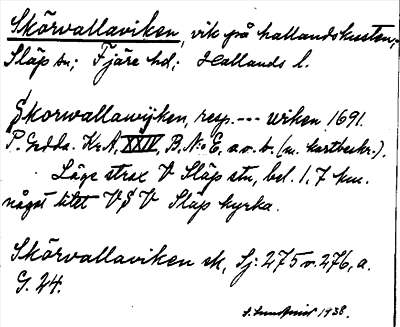 Skörvallaviken, vik på hallandskusten;
Släp sn; Fjäre hd; Hallands l.
Skorwallawijken, resp. --- wiken 1691.
P. Gedda. Kr.A, XXIV, B. N:o E, a.o.b. (m. kartbeskr.).
Läge strax V Släp stn, bel. 1,7 km.
något litet V§V Släp kyrka.
Skörvallaviken sk, Sj: 275 o. 276, a.
G. 24.
S. Lundquist 1938.